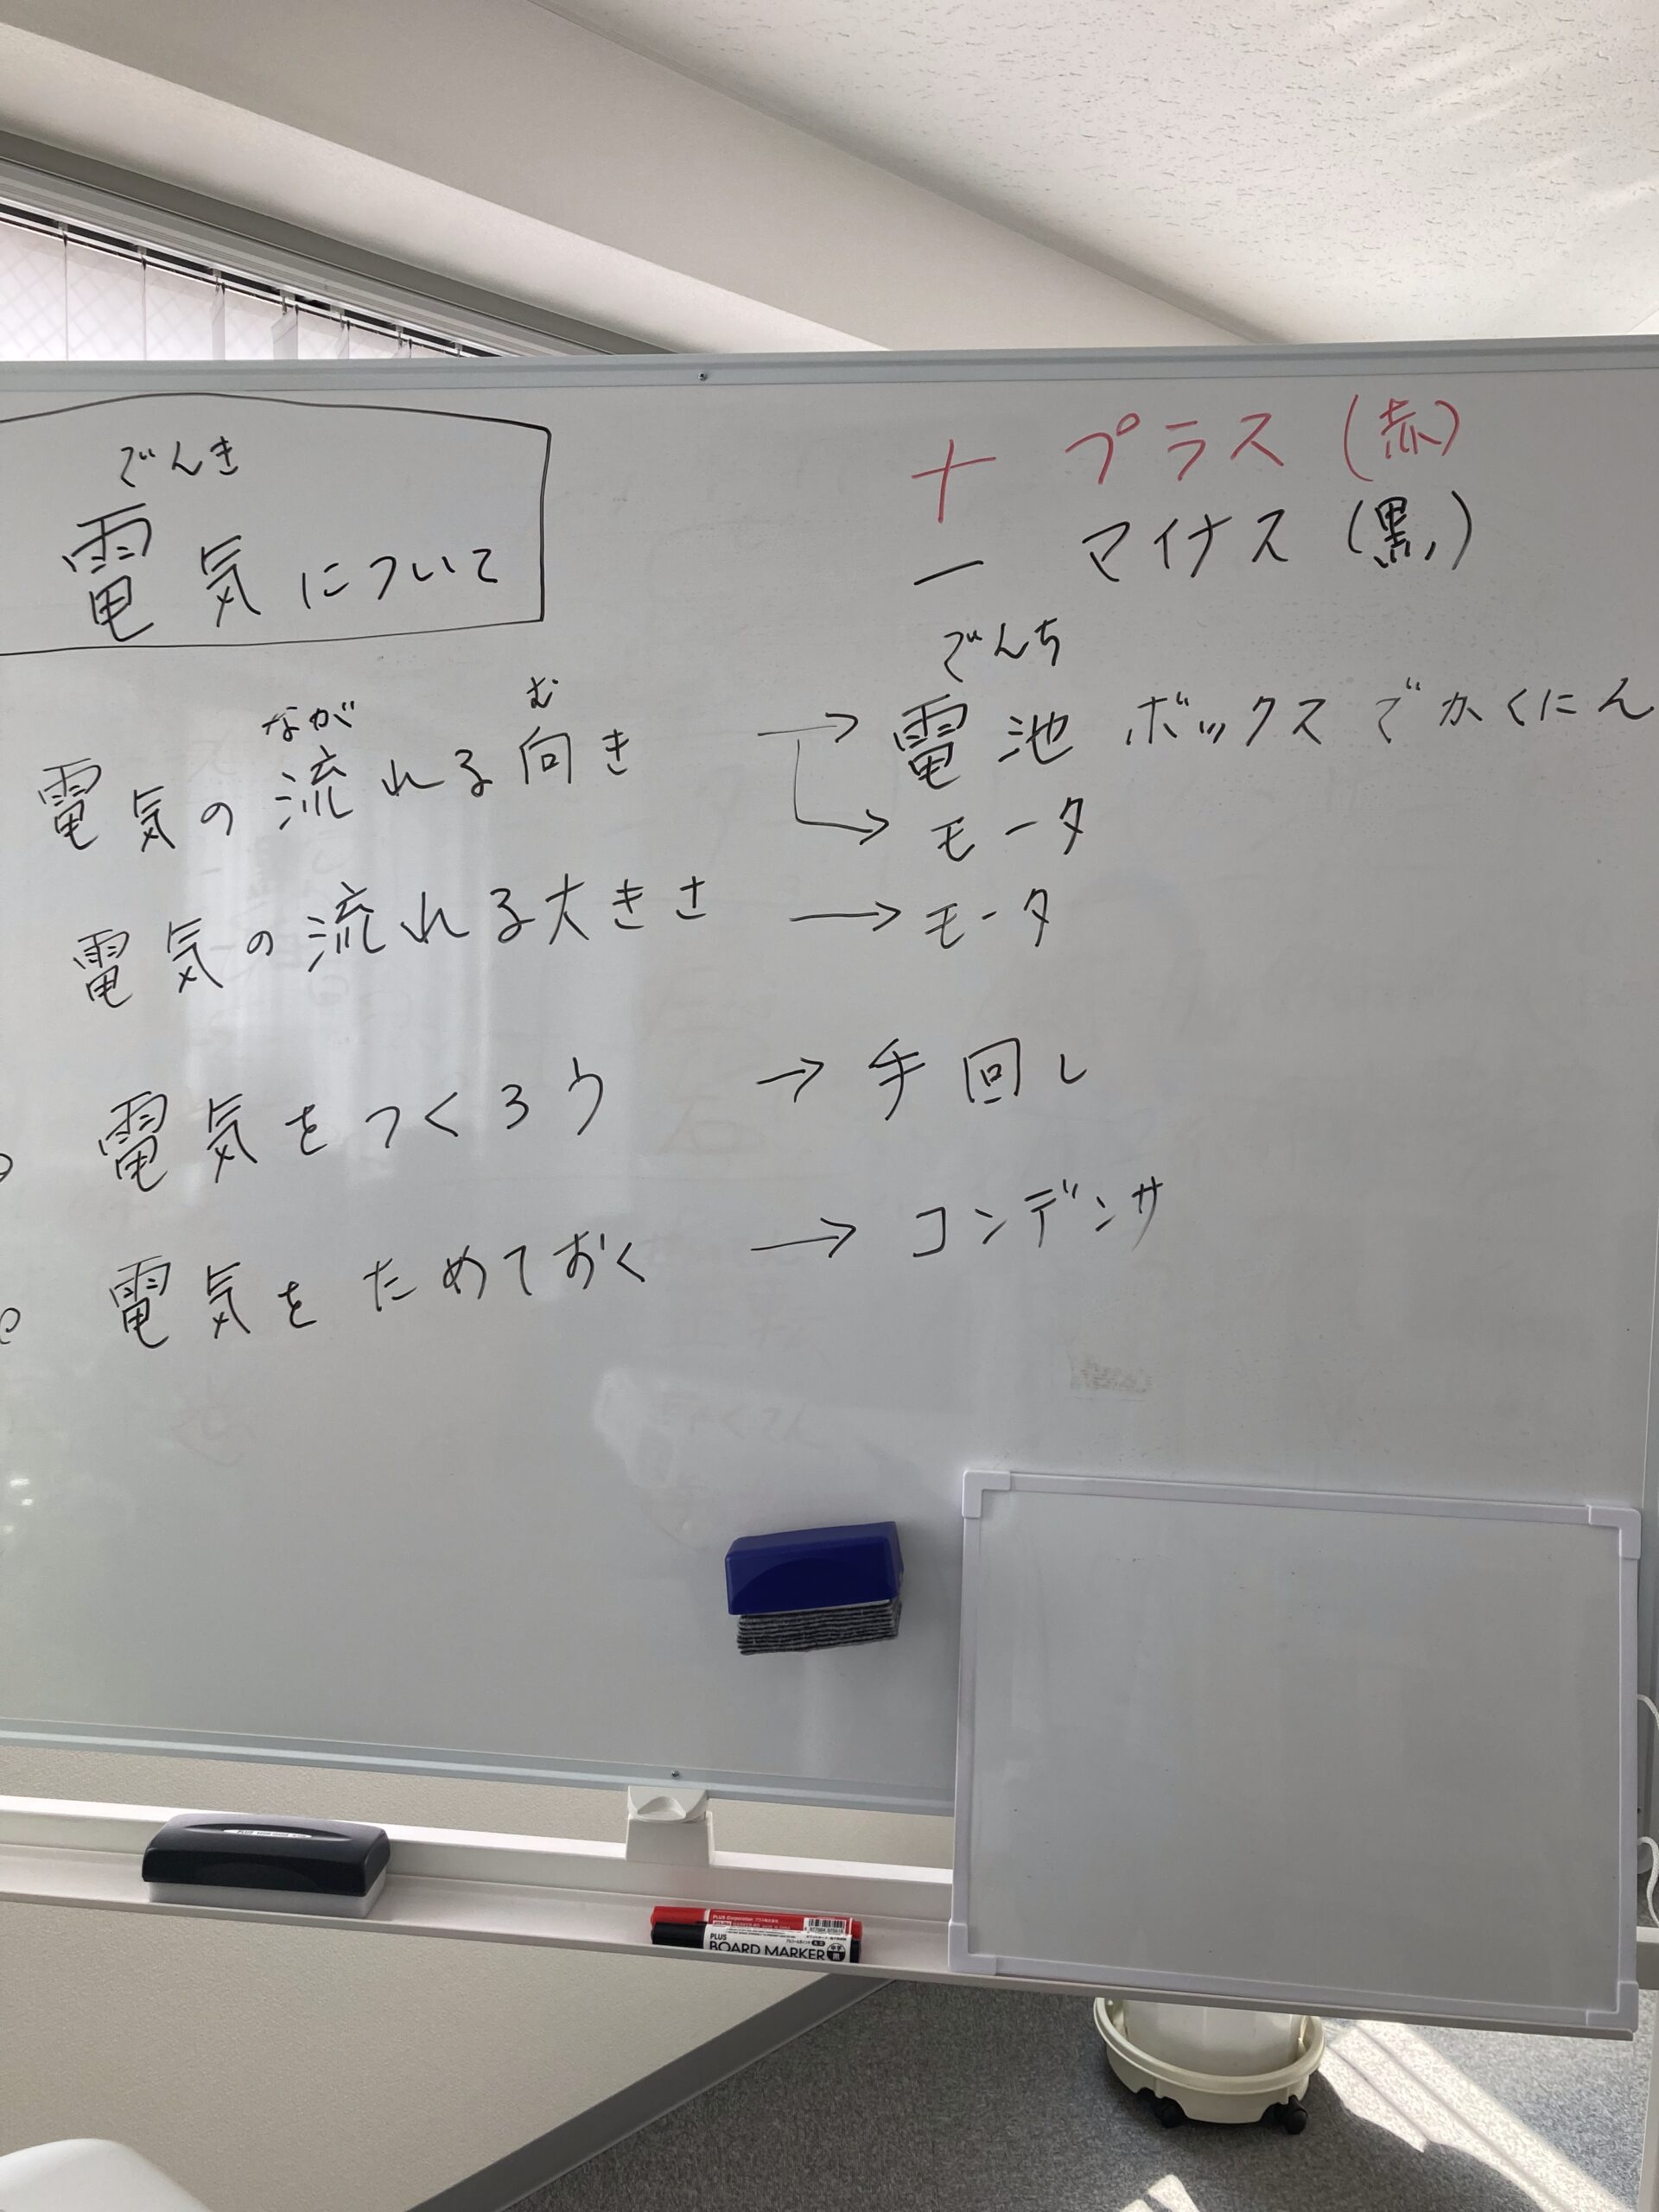 でんき
電気について
+ プラス (赤)
− マイナス (黒)
なが む
電気の流れる向き → でんち 電池ボックスでかくにん
→ モータ
電気の流れる大きさ → モータ
電気をつくろう → 手回し
電気をためておく → コンデンサ
PLUS
BOARD MARKER